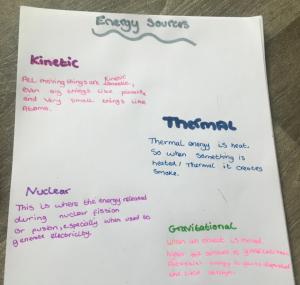 Energy Sources
Kinetic
All moving things are Kinetic,
even big things like planets
and very small things like
Atoms.
Thermal
Thermal energy is heat.
So when something is
heated / Thermal it creates
smoke.
Nuclear
This is where the energy released
during nuclear fission
or fusion, especially when used to
generate electricity.
Gravitational
When an object is moved
higher
energy is
and